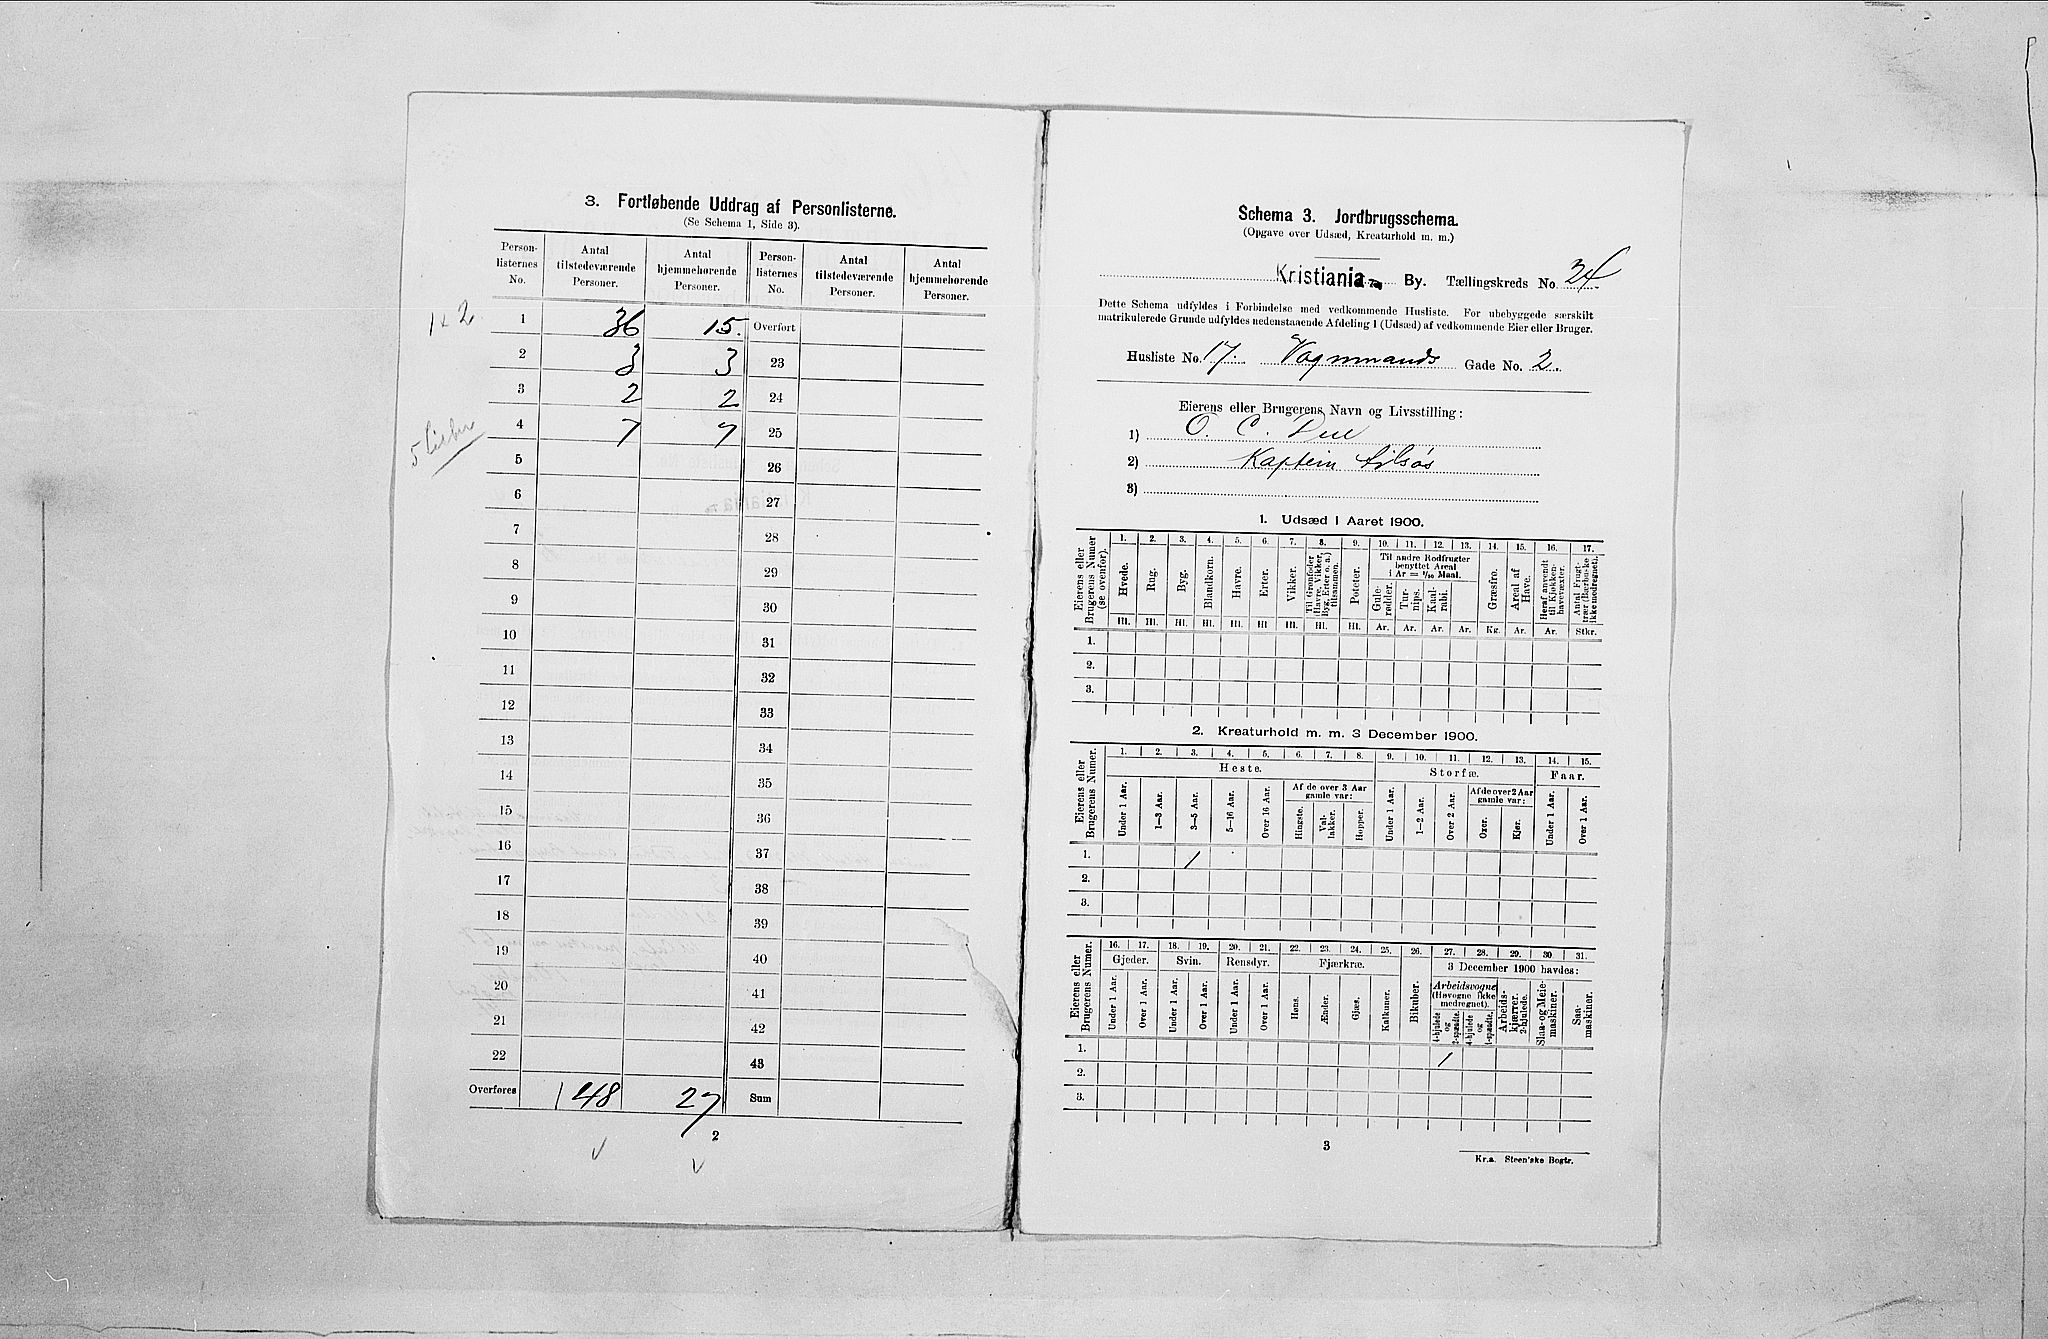 3. Fortløbende Uddrag af Personlisterne.
(Se Schema 1, Side 3).
Person-listernes No. Antal tilstedeværende Personer. Antal hjemmehørende Personer. Person-listernes No. Antal tilstedeværende Personer. Antal hjemmehørende Personer.
1 & 2. 1 36 15. Overført
2 3 3 23
3 2 2 24
4 7 7 25
5 26
6 27
7 28
8 29
9 30
10 31
11 32
12 33
13 34
14 35
15 36
16 37
17 38
18 39
19 40
20 41
21 42
22 43
Overføres 48 27 Sum
2
Schema 3. Jordbrugsschema.
(Opgave over Udsæd, Kreaturhold m. m.)
Kristiania By. Tællingskreds No. 34.
Dette Schema udfyldes i Forbindelse med vedkommende Husliste. For ubebyggede særskilt
matrikulerede Grunde udfyldes nedenstaaende Afdeling 1 (Udsæd) af vedkommende Eier eller Bruger.
Husliste No. 17. Vognmands Gade No. 2.
Eierens eller Brugerens Navn og Livsstilling:
1) O. C. Due
2) Kaptein tilsøs
3)
1. Udsæd i Aaret 1900.
Eierens eller Brugerens Numer (se ovenfor).
1. 2. 3. 4. 5. 6. 7. 8. 9. 10. 11. 12. 13. 14. 15. 16. 17.
Hvede. Rug. Byg. Blandkorn. Havre. Erter. Vikker. Til Grønfoder (Havre, Vikker, Byg, Erter o. a.) tilsammen. Poteter.
Til andre Rodfrugter benyttet Areal i Ar = 1/10 Maal.
Gule-rødder. Tur-nips. Kaal-rabi. Græsfrø. Areal af Have. Heraf anvendt til Kjøkken-havevæxter. Antal Frugt-trær (Bærbuske ikke medregnet).
Hl. Hl. Hl. Hl. Hl. Hl. Hl. Hl. Hl. Ar. Ar. Ar. Ar. Kg. Ar. Ar. Stkr.
1.
2.
3.
2. Kreaturhold m. m. 3 December 1900.
Eierens eller Brugerens Numer.
1. 2. 3. 4. 5. 6. 7. 8. 9. 10. 11. 12. 13. 14. 15.
Heste. Storfæ. Faar.
Af de over 3 Aar gamle var: Af de over 2 Aar gamle var:
Under 1 Aar. 1—3 Aar. 3—5 Aar. 5—16 Aar. Over 16 Aar. Hingste. Val-lakker. Hopper. Under 1 Aar. 1—2 Aar. Over 2 Aar. Oxer. Kjør. Under 1 Aar. Over 1 Aar.
1. 1
2.
3.
Eierens eller Brugerens Numer.
16. 17. 18. 19. 20. 21. 22. 23. 24. 25. 26. 27. 28. 29. 30 31.
Gjeder. Svin. Rensdyr. Fjærkræ. 3 December 1900 havdes:
Under 1 Aar. Over 1 Aar. Under 1 Aar. Over 1 Aar. Under 1 Aar. Over 1 Aar. Høns. Ænder. Gjæs. Kalkuner. Bikuber.
Arbeidsvogne (Høvogne ikke medregnet).
4-hjulede og 2-spændte. 4-hjulede og 1-spændte. Arbeids-kjærrer, 2-hjulede. Slaa- og Meie-maskiner. Saa-maskiner.
1. 1
2.
3.
3
Kr.a. Steen'ske Bogtr.